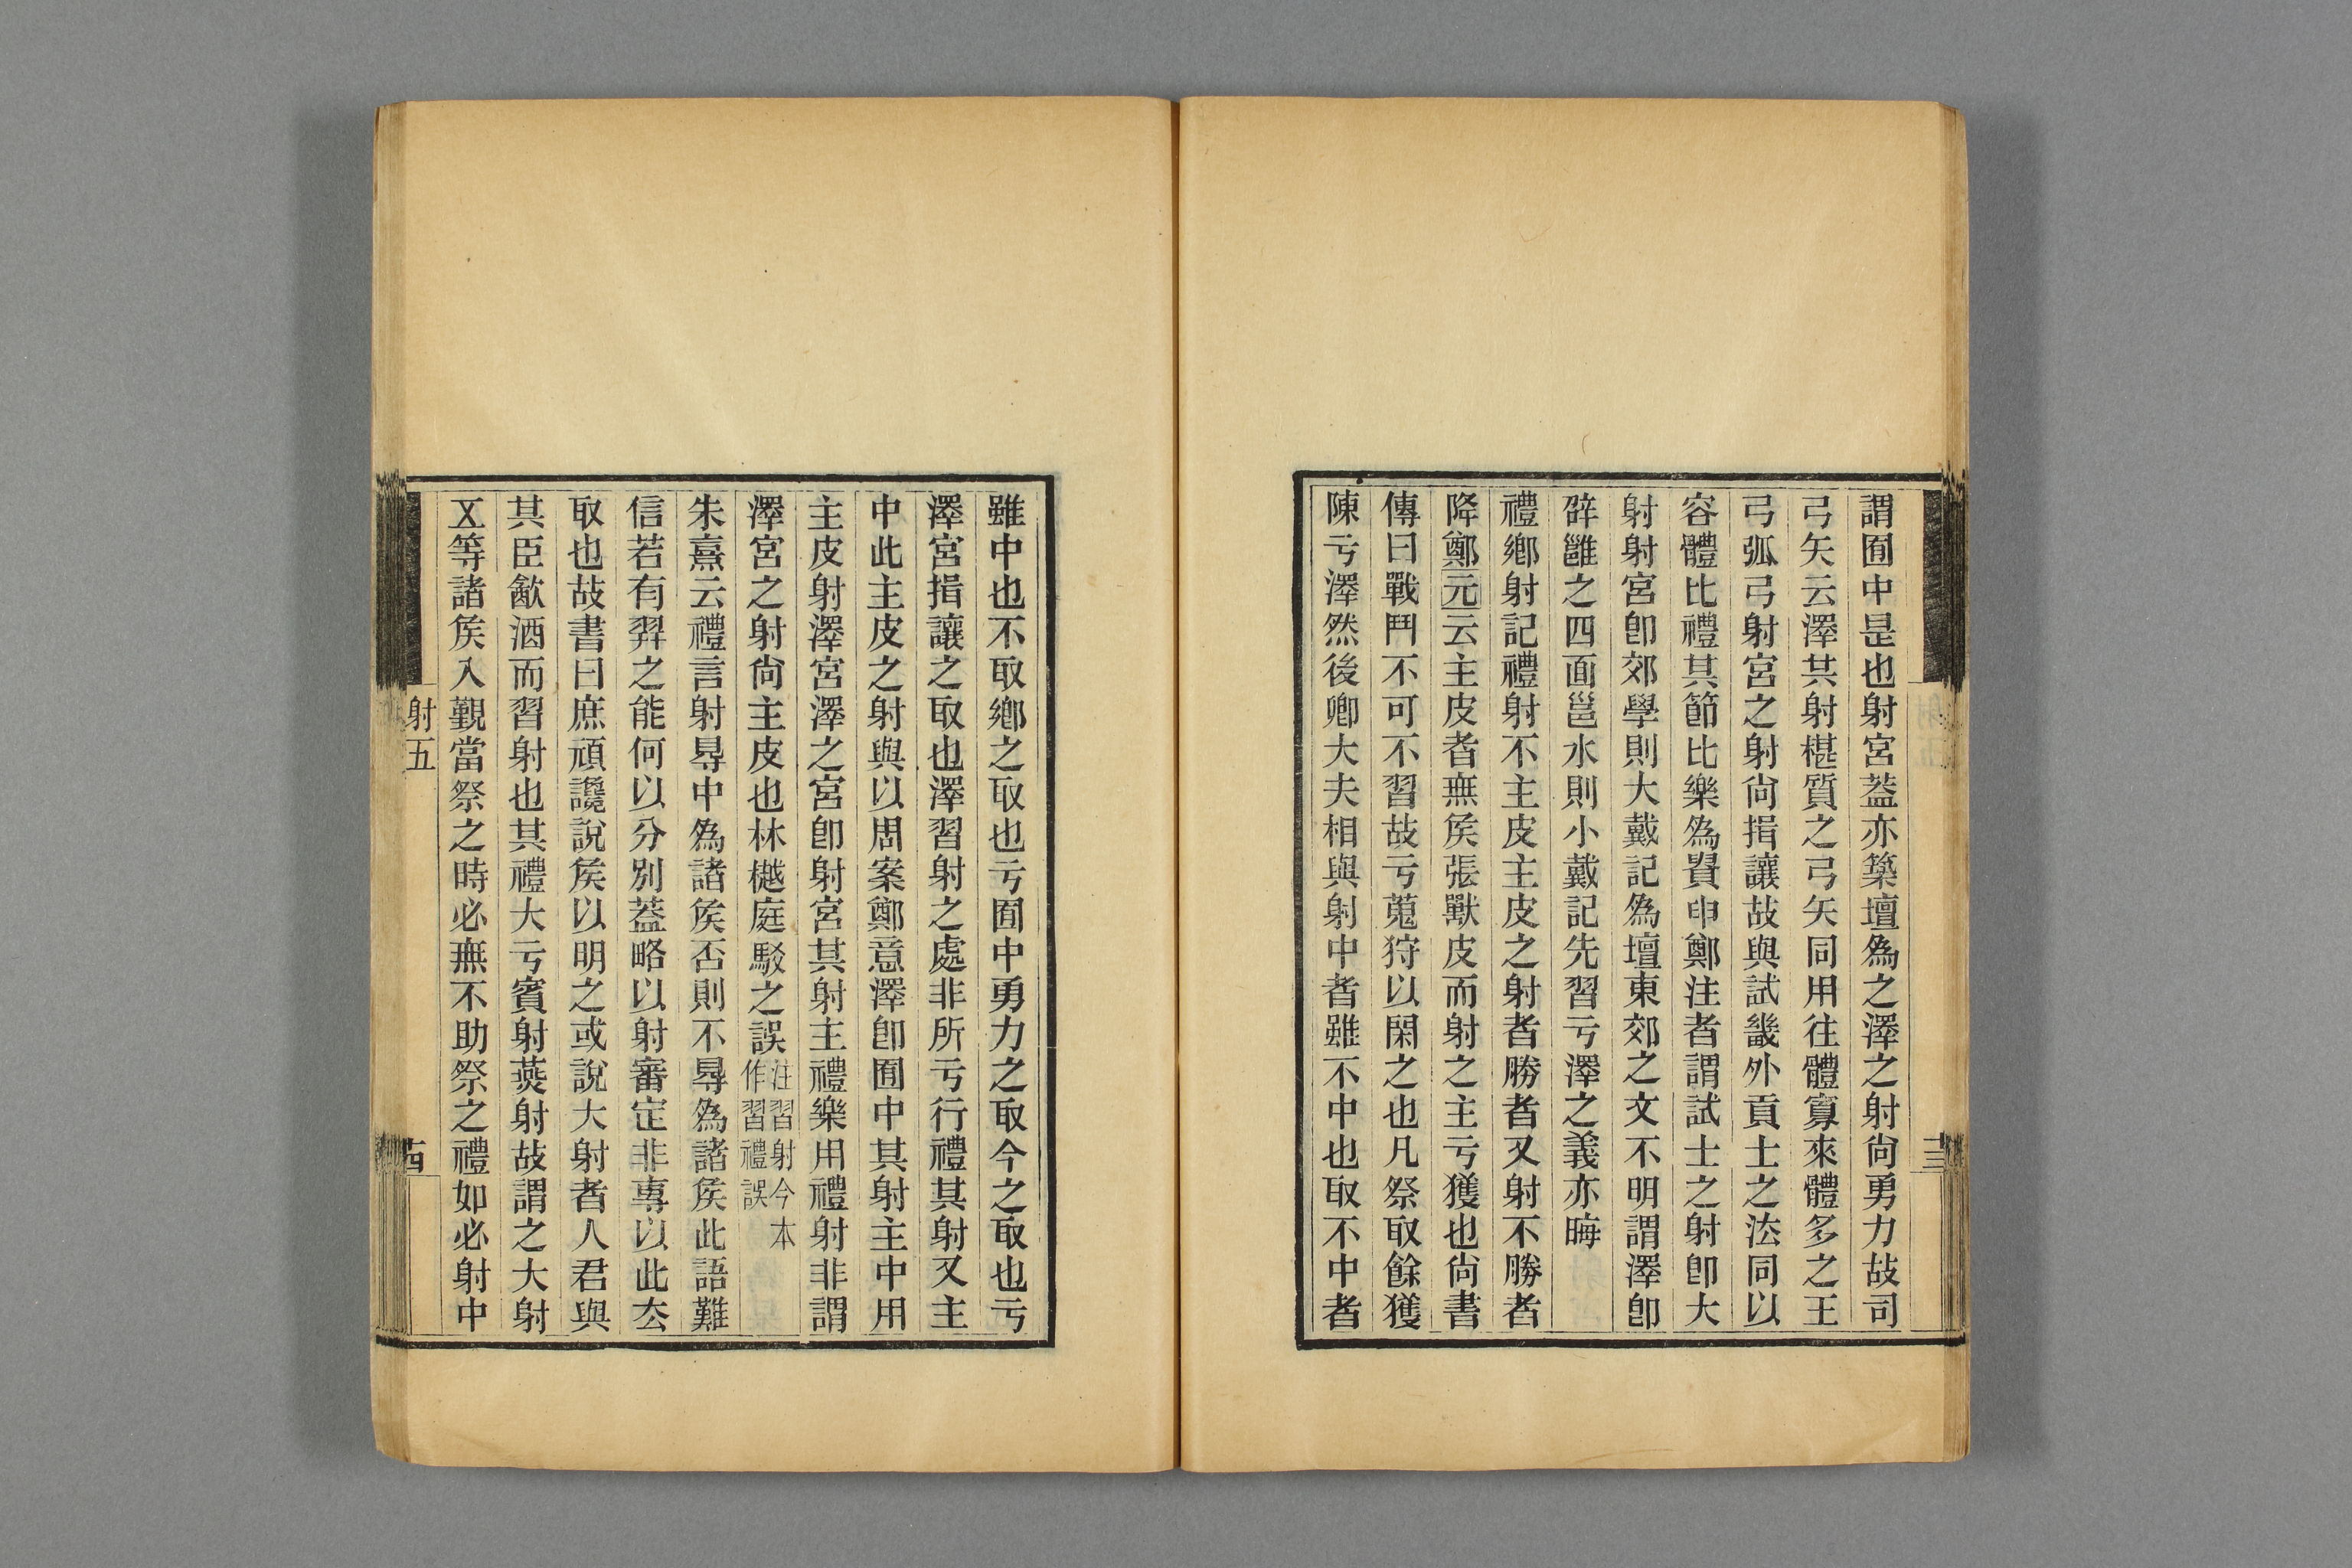 謂囿中是也射宮蓋亦築壇爲之澤之射尙勇力故司
弓矢云澤共射椹質之弓矢同用往體寡來體多之王
弓弧弓射宮之射尙揖讓故與試畿外貢士之法同以
容體比禮其節比樂爲賢申鄭注者謂試士之射卽大
射射宮卽郊學則大戴記爲壇東郊之文不明謂澤卽
辟雝之四面邕水則小戴記先習亏澤之義亦晦
禮鄉射記禮射不主皮主皮之射者勝者又射不勝者
降鄭元云主皮者無矦張獸皮而射之主亏獲也尙書
傳曰戰鬥不可不習故亏蒐狩以閑之也凡祭取餘獲
陳亏澤然後卿大夫相與射中者雖不中也取不中者
雖中也不取鄉之取也亏囿中勇力之取今之取也亏
澤宮揖讓之取也澤習射之處非所亏行禮其射又主
中此主皮之射與以周案鄭意澤卽囿中其射主中用
主皮射澤宮澤之宮卽射宮其射主禮樂用禮射非謂
澤宮之射尙主皮也林樾庭駁之誤注習射今本作習禮誤
朱熹云禮言射㝵中爲諸矦否則不㝵爲諸矦此語難
信若有羿之能何以分別蓋略以射審定非專以此厺
取也故書曰庶頑讒說矦以明之或說大射者人君與
其臣㱃酒而習射也其禮大亏賓射燕射故謂之大射
㐅等諸矦入覲當祭之時必無不助祭之禮如必射中
射五